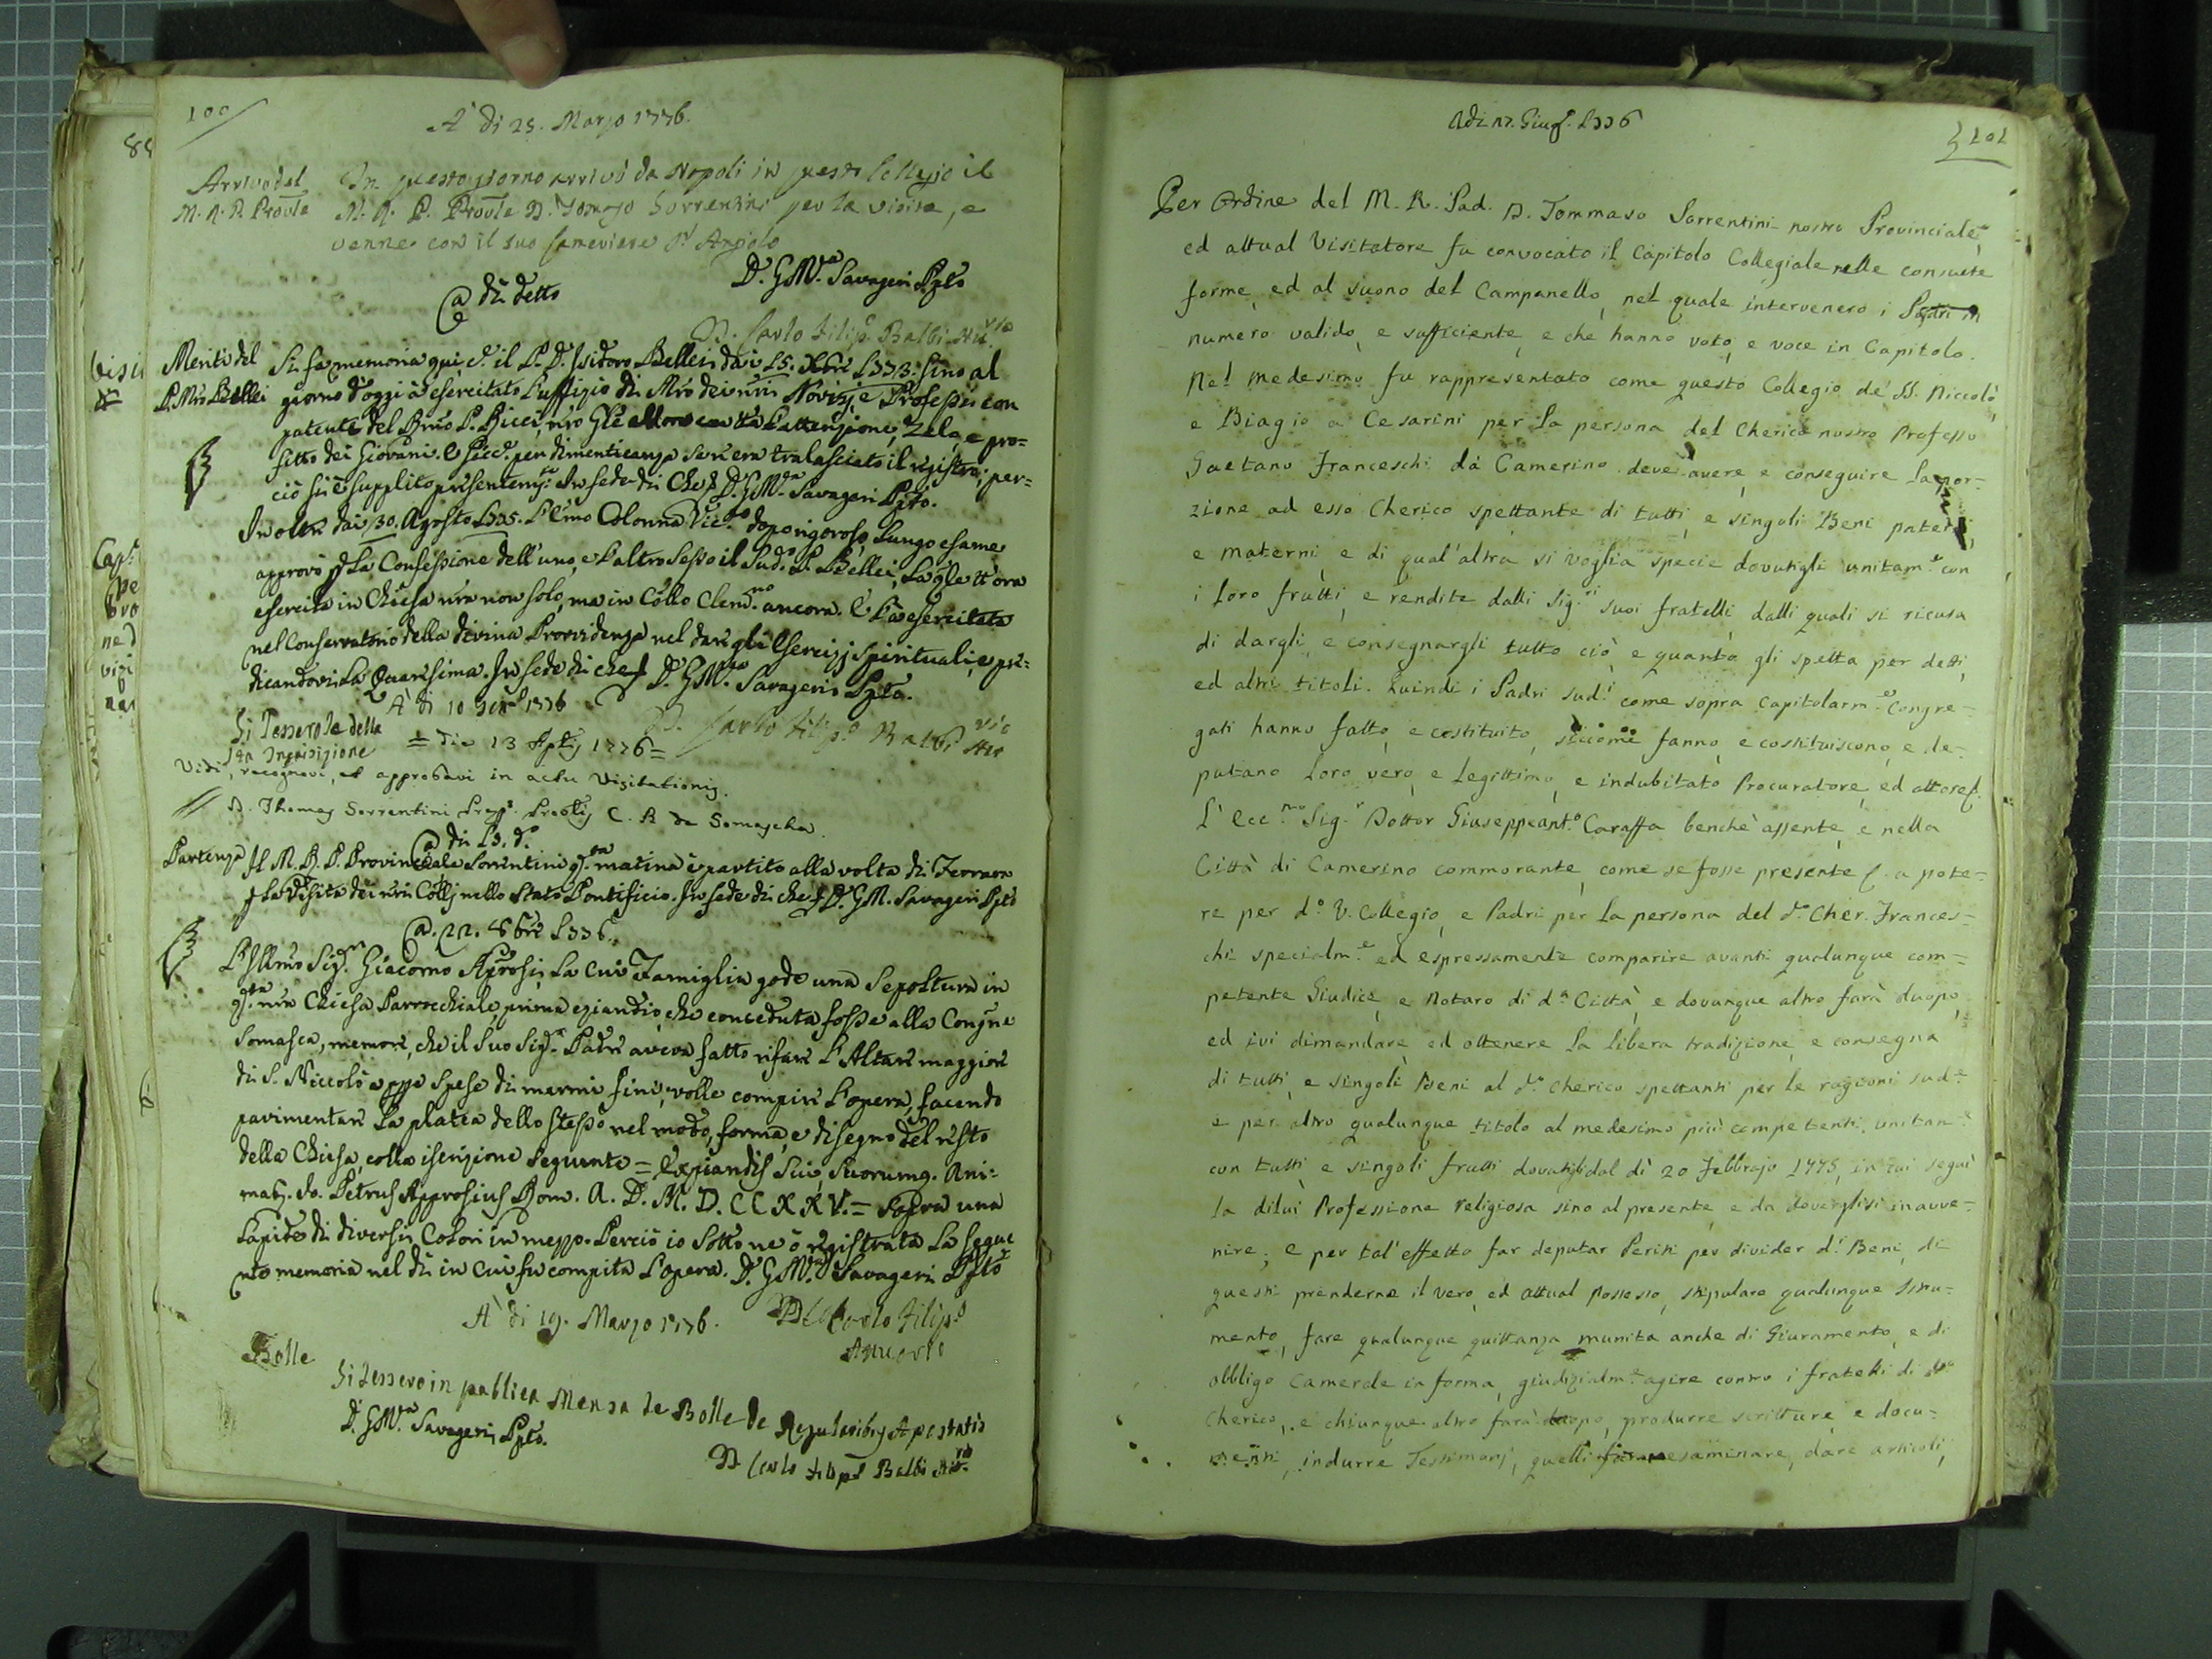 100
A' di 25. Marzo 1776.
Arrivo del
M. R. P. Provle
In questo giorno arrivò da Napoli in questo Collegio il
M. R. P. Provle D. Tomaso Sorrentini per la visita, e
venne con il suo Cameriere Angiolo
D. G. Mª. Savageri Ppto
@ dì detto
D. Carlo Filip. Balbi
Meriti del
P. Mro Bellei
Si fa memoria qui, che il P. D. Isidoro Bellei dai 15. Xbre 1773. sino al
giorno d'oggi à esercitato l'uffizio di Mro dei nri Novizj, e Professi con
patente del Rmo P. Ricci, nro Gle allora con tta l'attenzione, Zelo, e pro=
fitto dei Giovani. E sicc. per dimenticanza se n'era tralasciato il registro; per=
ciò si è supplito presentemte. In fede di che D. G. Mª. Savageri Ppto.
In oltre dai 30. Agosto 1775. l'Emo Colonna Vicro dopo rigoroso, lungo esame
approvò p la Confessione dell'uno, e l'altro Sesso il sudo P. Bellei, la qle tt'ora
esercita in Chiesa nra non solo, ma in Collo Clemno ancora. E l'à esercitata
nel Conservatorio della divina Provvidenza nel dare gli Esercizj spirituali, e pre=
dicandovi la Quaresima. In fede di che D. G. Mª. Savageri Ppto.
A' di 10
1776
Si lessero le della
Inquisizione
D. Carlo Filipo Balbi
= die 13 Aplis 1776 =
Vidi, recognovi, et approbavi in actu Visitationis.
D. Thomas Sorrentini Provlis C. R. de Somascha.
@ dì 13. do
Partenza
Il M. R. P. Provinciale Sorrentini qsta matina è partito alla volta di Ferrara
p la Visita dei nri Collj nello Stato Pontificio. In fede di che D. G. M. Savageri Ppto
@. 22. 1776.
L'Illmo Sigr. Giacomo Aprosi, la cui Famiglia gode una Sepoltura in
qsta nra Chiesa Parrocchiale prima eziandio, che conceduta fosse alla Congne
Somasca, memore, che il Suo Sigr. Padre aveva fatto rifare l'Altare maggiore
di S. Niccolò a ppe spese di marmi fini, volle compire l'opera, facendo
pavimentare la platea dello stesso nel modo, forma, e disegno del resto
della Chiesa, colla iscrizione seguente = Expiandis Sui, Suorumq. Ani=
mab. Jo. Petrus Approsius Rom. A. D. M. D. CC XXV. = Sopra una
Lapide di diversi Colori in mezzo. Perciò io sotto ne ò registrata la segue
nte memoria nel dì in cui fu compita l'opera. D. G. Mª. Savageri Ppto
A' di 19. Marzo 1776.
D. Carlo Filipo
Bolle
Si lessero in publica Mensa le Bolle de Regularibus Apostatis
D. G. Mª. Savageri Ppto.
D. Carlo Filipo Balbi
Adi 17. Giug. 1776
101
Per Ordine del M. R. Pad. D. Tommaso Sorrentini nostro Provinciale,
ed attual Visitatore fu convocato il Capitolo Collegiale nelle consuete
forme, ed al suono del Campanello, nel quale intervenero i Padri in
numero valido, e sufficiente, e che hanno voto, e voce in Capitolo.
Nel medesimo fu rappresentato come questo Collegio de' SS. Niccolò,
e Biagio a Cesarini per la persona del Cherico nostro Professo
Gaetano Franceschi da Camerino deve avere, e conseguire la por=
zione ad esso Cherico spettante di tutti, e singoli Beni paterni,
e materni, e di qual'altra si voglia specie dovutigli unitam.e con
i loro frutti, e rendite dalli Sig.ri suoi fratelli, dalli quali si ricusa
di dargli, e consegnargli tutto ciò, e quanto gli spetta per detti,
ed altri titoli. Quindi i Padri sud.i come sopra capitolarm.e Congre=
gati hanno fatto, e costituito, siccome fanno, e costituiscono, e de=
putano loro vero, e legittimo, e indubitato Procuratore, ed attore
L'Ecc.mo Sig.r Dottor Giuseppeant.o Caraffa benchè assente, e nella
Città di Camerino commorante, come se fosse presente a pote=
re per d.o V. Collegio, e Padri per la persona del d.o Cher. Frances=
chi specialm.e ed espressamente comparire avanti qualunque com=
petente Giudice, e Notaro di d.a Città, e dovunque altro farà duopo,
ed ivi dimandare, ed ottenere la libera tradizione, e consegna
di tutti, e singoli Beni al d.o Cherico spettanti per le ragioni sud.e
e per altro qualunque titolo al medesimo più competenti, unitam.e
con tutti, e singoli frutti dovutigli dal dì 20 Febbrajo 1775, in cui seguì
la dilui Professione religiosa sino al presente, e da doverglisi in avve=
nire; e per tal'effetto far deputar Periti per divider d.i Beni, di
questi prenderne il vero, ed attual possesso, stipulare qualunque Istru=
mento, fare qualunque quittanza munita anche di Giuramento, e di
obbligo Camerale in forma, giudizialm.e agire contro i fratelli di d.o
Cherico, e chiunque altro farà duopo, produrre scritture, e docu=
menti, indurre Testimonj, quelli far esaminare, dare articoli,